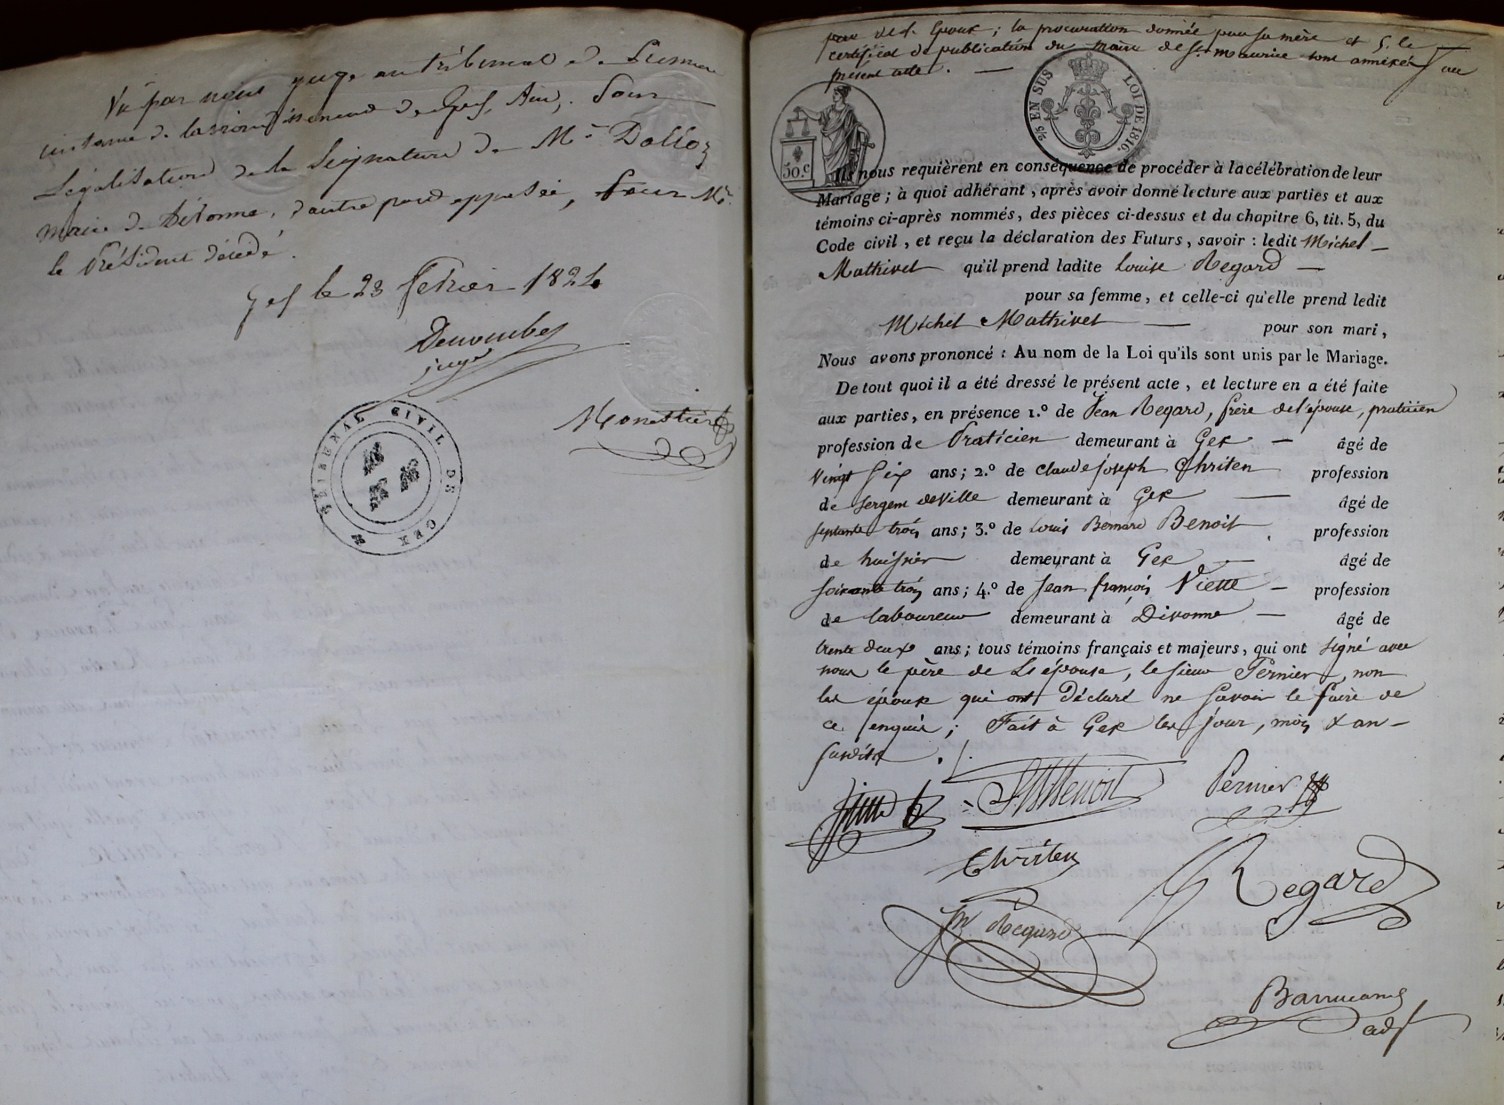 Vû par nous juge au tribunal de Premiere
instance de l'arrondissement de Gex, Ain, Pour
Légalisation de la Signature de Mr Dolloz
maire de Divonne, d'autre part apposée, Pour Mr.
le Président décédé.
Gex le 23 février 1824
juge
Monthier
TRIBUNAL CIVIL DE GEX
père de l'Epoux ; la procuration donnée par sa mère et le
certificat de publication du maire de St maurice sont annexés au
présent acte. —
50. C
5/10 EN SUS LOI DE 1816.
Ils nous requièrent en conséquence de procéder à la célébration de leur
Mariage ; à quoi adhérant, après avoir donné lecture aux parties et aux
témoins ci-après nommés, des pièces ci-dessus et du chapitre 6, tit. 5, du
Code civil, et reçu la déclaration des Futurs, savoir : ledit Michel —
Mathivet qu'il prend ladite Louise Regard —
pour sa femme, et celle-ci qu'elle prend ledit
Michel Mathivet — pour son mari,
Nous avons prononcé : Au nom de la Loi qu'ils sont unis par le Mariage.
De tout quoi il a été dressé le présent acte, et lecture en a été faite
aux parties, en présence 1.º de Jean Regard, frère de l'épouse, praticien
profession de Praticien demeurant à Gex — âgé de
vingt six ans ; 2.º de Claude joseph Chriten profession
de Sergent de Ville demeurant à Gex — âgé de
septante trois ans ; 3.º de Louis Bernard Benoit profession
de huissier demeurant à Gex — âgé de
soixante trois ans ; 4.º de Jean françois Viette — profession
de laboureur demeurant à Divonne — âgé de
trente deux ans ; tous témoins français et majeurs, qui ont signé avec
nous le père de L'épouse, le sieur Pernier, non
les époux qui ont déclaré ne savoir le faire de
ce enquis ; Fait à Gex les jour, mois & an —
susdits ./.
Benoit Pernier
Chriten
Regard
Jn Regard
adj